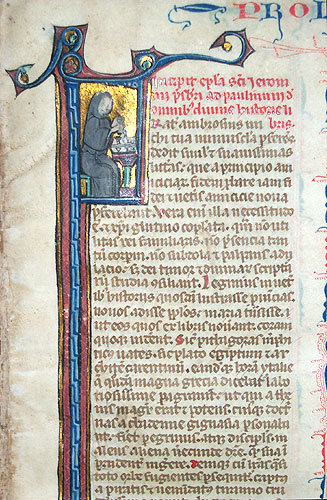 PROL
Incipit epla sci Ieroni
mi pbri ad paulinum d
omnibus diuine historie li
Frat ambrosius tua m bris
chi tua munuscula pferens
detulit simul et suauissimas
litteras que a principio ami
ciciaz fidem pbate iam fi
dei et ueteris amicicie noua
pferebant. Vera enim illa necessitudo
e. et xpi glutino copulata. qm non uti
litas rei familiaris. non psencia tan
tum corpoz. non subdola et palpans adu
lacio. sed dei timor et diuinaz scriptu
raz studia conciliant. Legimus in uete
ribus historiis quosdam lustrasse puincias.
nouos adisse pplos. maria transisse.
ut eos quos ex libris nouant. coram
quoque uident. Sic pithagoras mphi
ticos uates. sic plato egiptum et ar
chitam tarentinum. eandemque oram ytalie
que quondam magna grecia dicebat labori
osissime pagrauit. ut qui athe
nis magr erat et potens. cuiusque doct
nas achademie gignasia psonabant
fieret pegrinus. atque discipls. m
alens aliena uecunde discere. quam sua i
pudent ingere. Denique cum litteras quasi
toto orbe fugientes psequitur. captus
a piratis et uenundatus tiranno cru